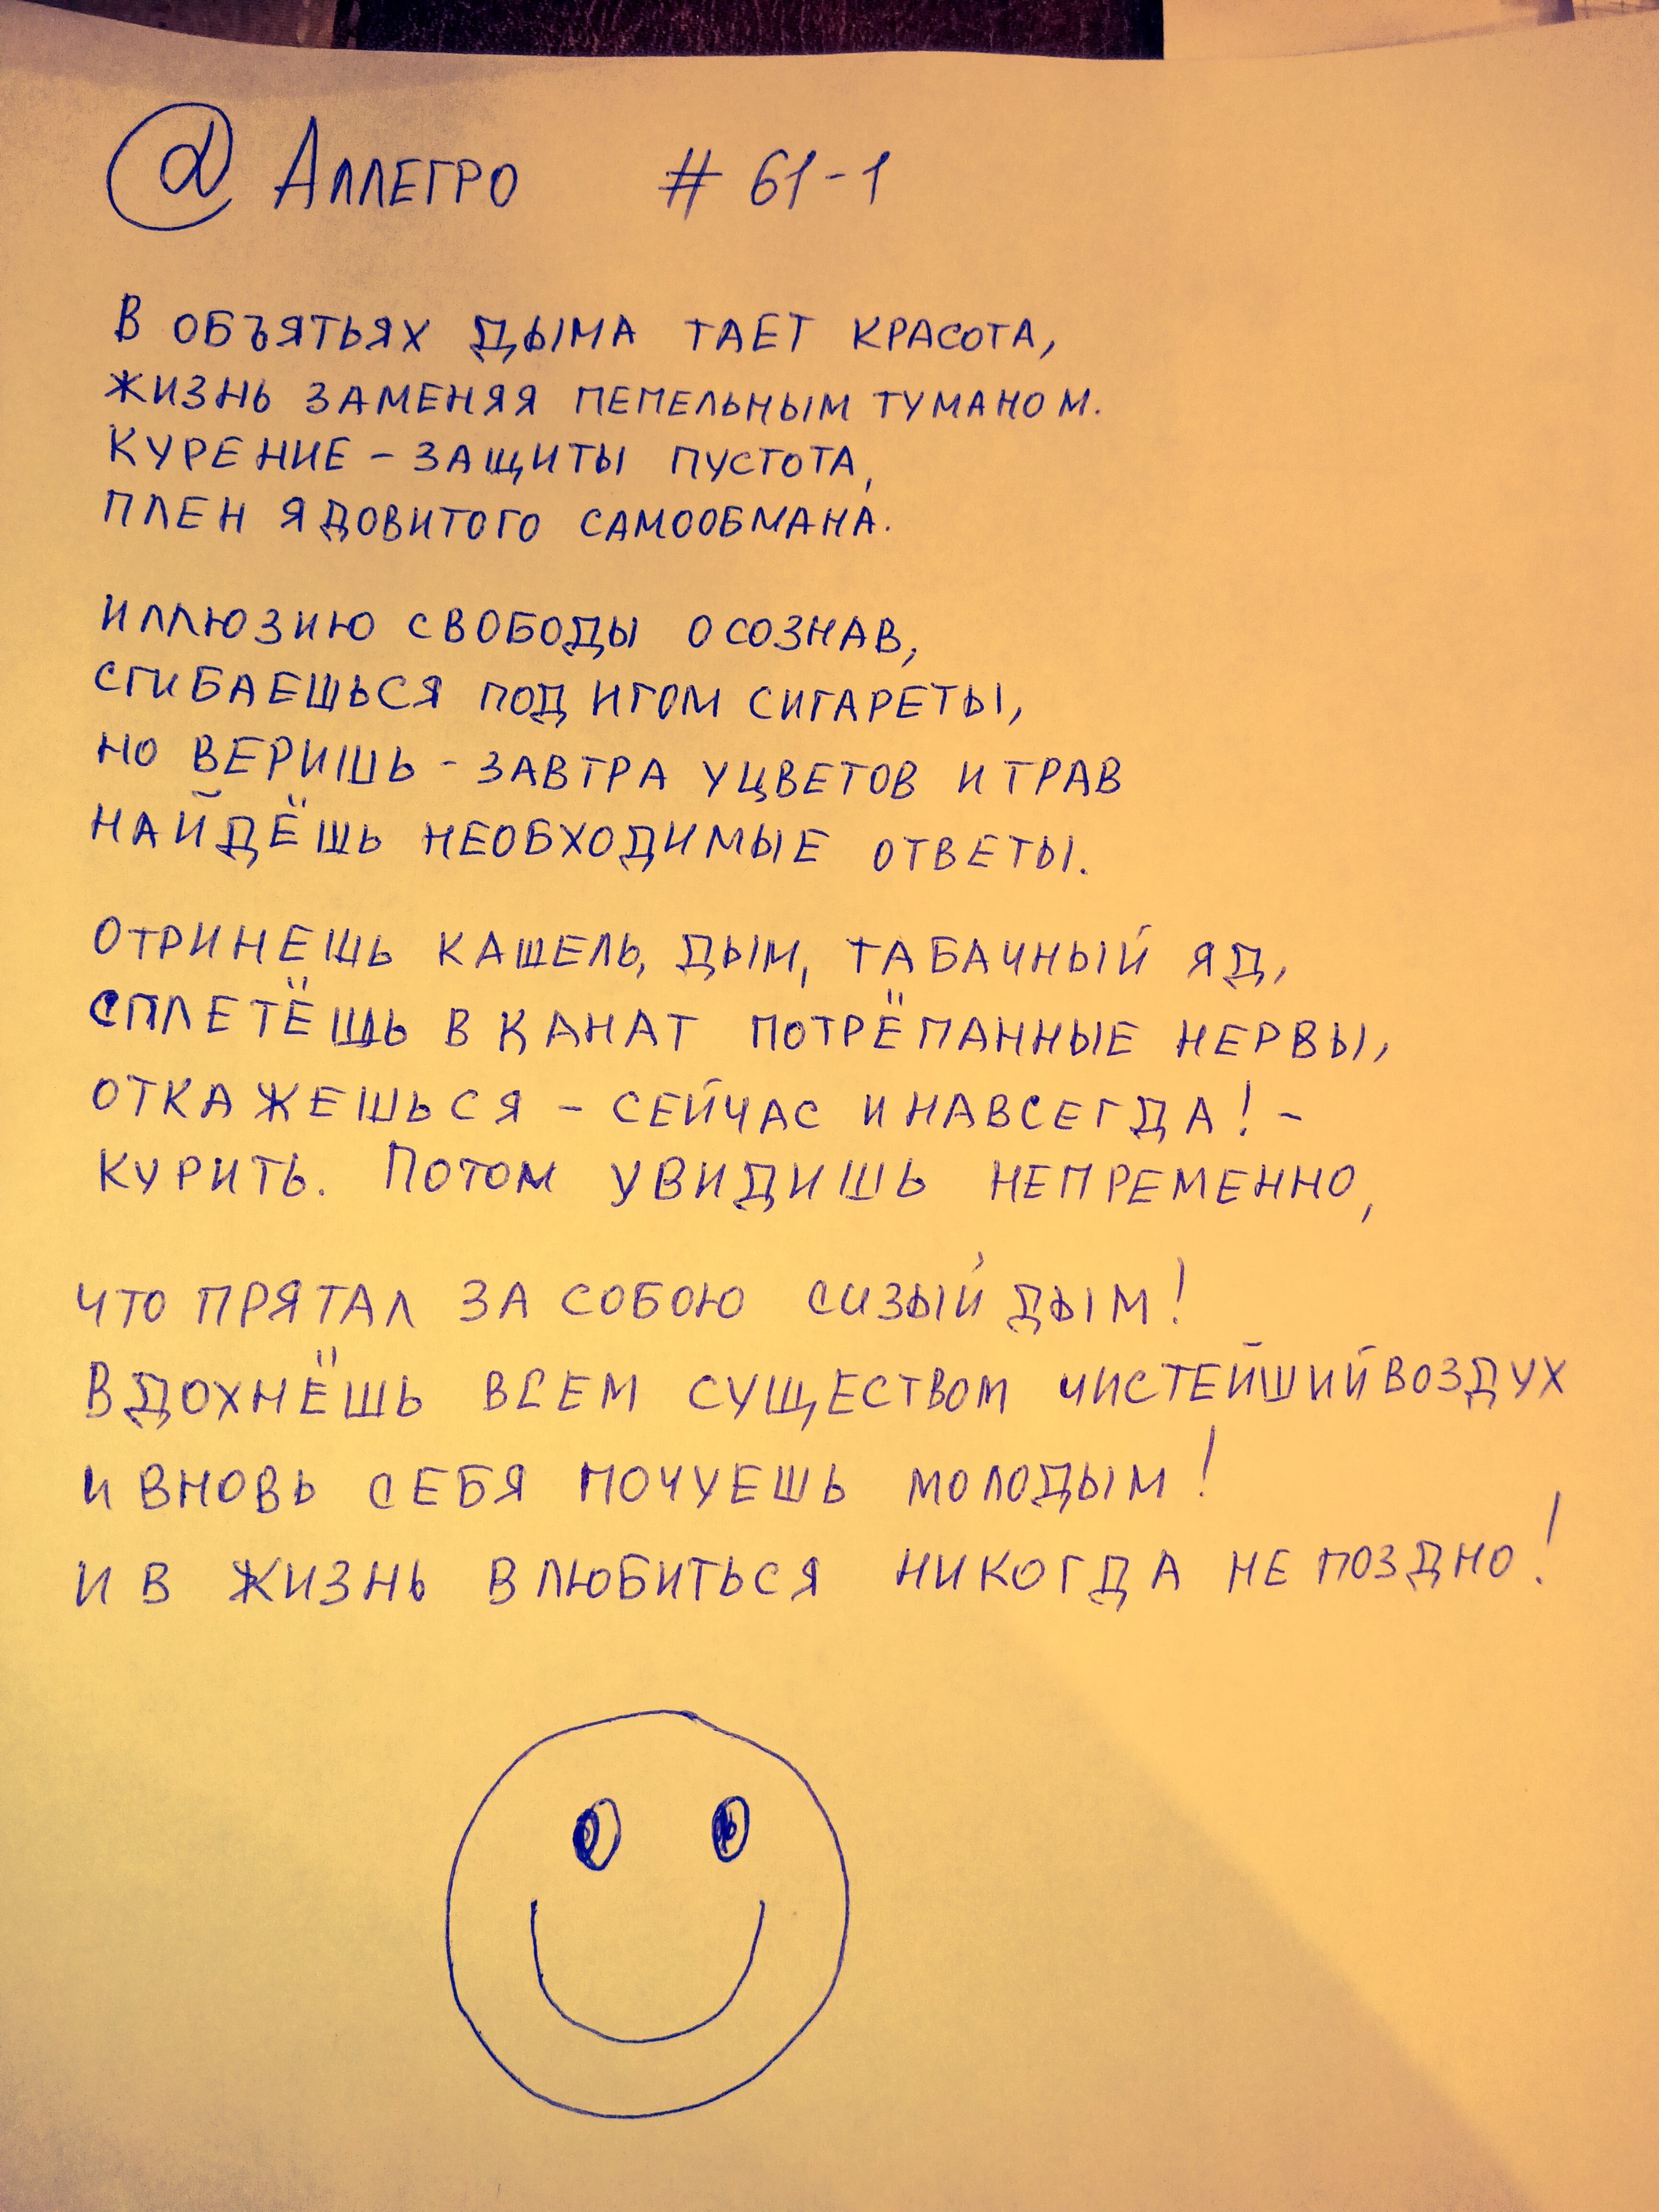 @ Аллегро # 61-1
В объятьях дыма тает красота,
жизнь заменяя пепельным туманом.
Курение - защиты пустота,
плен ядовитого самообмана.
Иллюзию свободы осознав,
сгибаешься под игом сигареты,
но веришь - завтра у цветов и трав
найдёшь необходимые ответы.
Отринешь кашель, дым, табачный яд,
сплетёшь в канат потрёпанные нервы,
откажешься - сейчас и навсегда! -
курить. Потом увидишь непременно,
что прятал за собою сизый дым!
Вдохнёшь всем существом чистейший воздух
и вновь себя почуешь молодым!
И в жизнь влюбиться никогда не поздно!